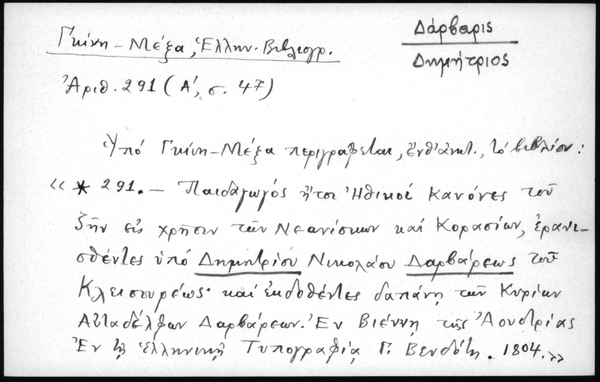 Γκίνη-Μέξα, Ἑλλην. Βιβλιογρ.
Δάρβαρις
Δημήτριος
Ἀριθ. 291 (Α΄, σ. 47)
Ὑπό Γκίνη-Μέξα περιγράφεται, ἔνθ' ἀνωτ., τό βιβλίον:
«* 291. — Παιδαγωγός ἤτοι Ἠθικοί Κανόνες τοῦ
ζῆν εἰς χρῆσιν τῶν Νεανίσκων καί Κορασίων, ἐρανι-
σθέντες ὑπό Δημητρίου Νικολάου Δαρβάρεως τοῦ
Κλεισουρέως· καί ἐκδοθέντες δαπάνῃ τῶν Κυρίων
Αὐταδέλφων Δαρβάρεων. Ἐν Βιέννῃ τῆς Ἀουστρίας
Ἐν τῇ Ἑλληνικῇ Τυπογραφίᾳ Γ. Βενδότη. 1804.»